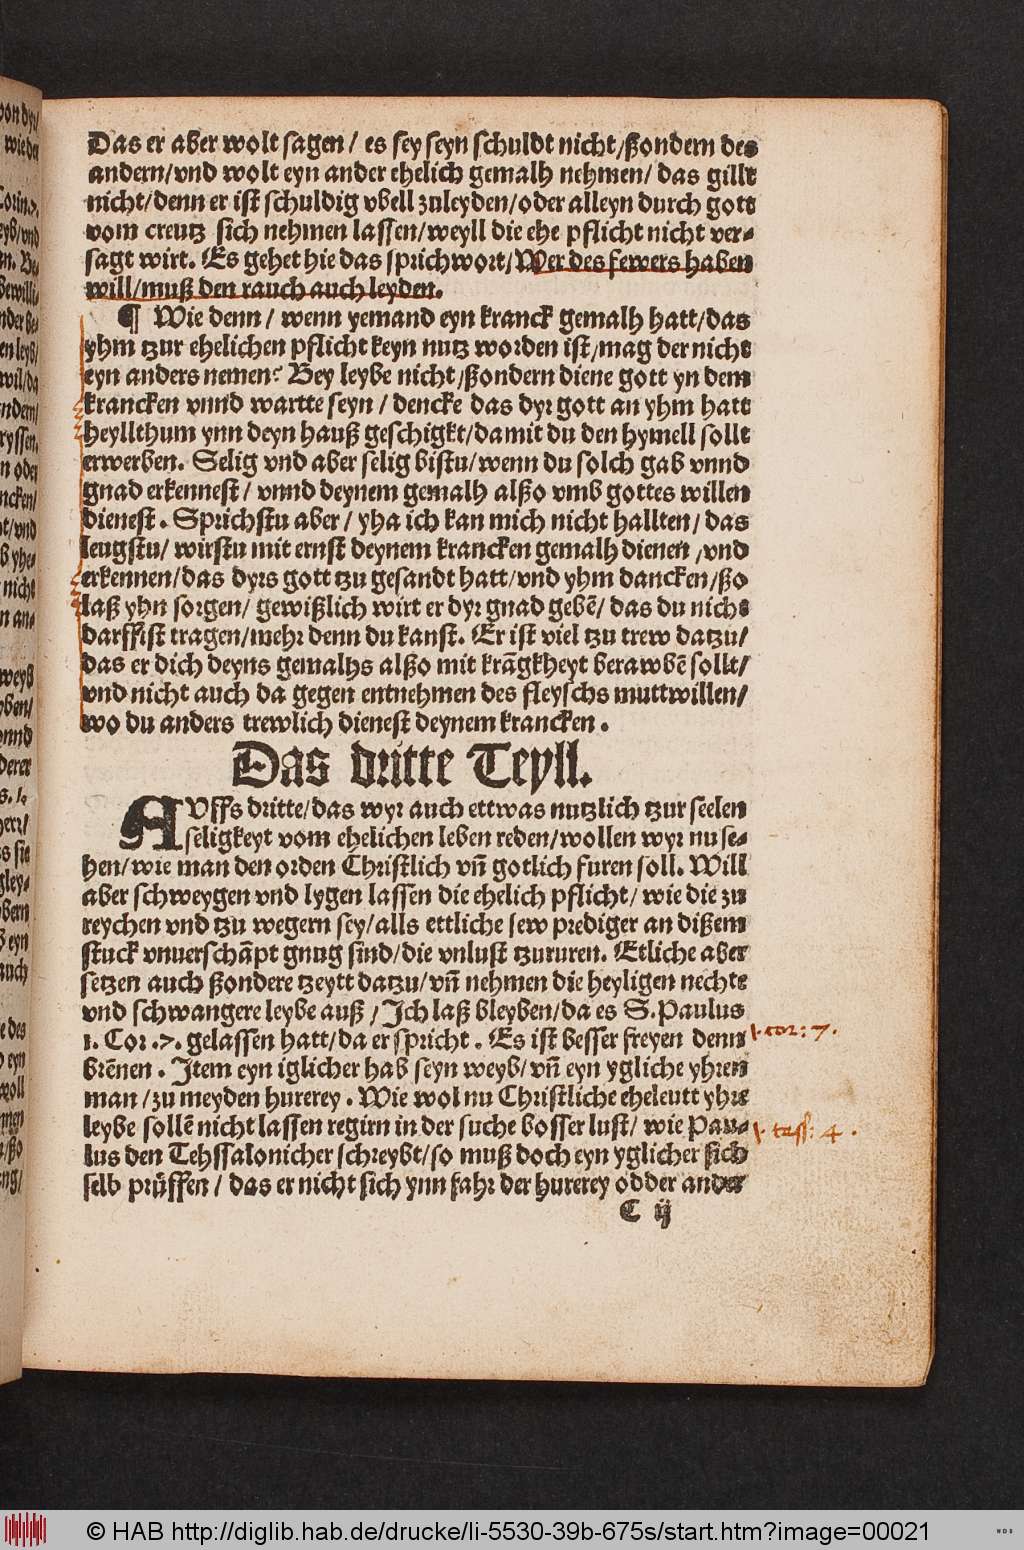 Das er aber wolt sagen/ es sey seyn schuldt nicht/ßondern des
andern/vnd wolt eyn ander ehelich gemalh nehmen/ das gillt
nicht/denn er ist schuldig vbell zuleyden/oder alleyn durch gott
vom creutz sich nehmen lassen/weyll die ehe pflicht nicht ver-
sagt wirt. Es gehet hie das sprichwort/Wer des fewers haben
will/muß den rauch auch leyden.
¶ Wie denn/ wenn yemand eyn kranck gemalh hatt/das
yhm tzur ehelichen pflicht keyn nutz worden ist/mag der nicht
eyn anders nemen? Bey leybe nicht/ßondern diene gott yn dem
krancken vnnd wartte seyn/ dencke das dyr gott an yhm hatt
heyllthum ynn deyn hauß geschigkt/damit du den hymell sollt
erwerben. Selig vnd aber selig bistu/wenn du solch gab vnnd
gnad erkennest/ vnnd deynem gemalh alßo vmb gottes willen
dienest. Sprichstu aber/ yha ich kan mich nicht hallten/ das
leugstu/ wirstu mit ernst deynem krancken gemalh dienen/vnd
erkennen/das dyrs gott tzu gesandt hatt/vnd yhm dancken/ßo
laß yhn sorgen/ gewißlich wirt er dyr gnad gebē/das du nicht
darffist tragen/mehr denn du kanst. Er ist viel tzu trew datzu/
das er dich deyns gemalhs alßo mit krāgkheyt berawbē sollt/
vnd nicht auch da gegen entnehmen des fleyschs muttwillen/
wo du anders trewlich dienest deynem krancken.
Das dritte Teyll.
AVffs dritte/das wyr auch ettwas nutzlich tzur seelen
seligkeyt vom ehelichen leben reden/wollen wyr nu se-
hen/wie man den orden Christlich vñ gotlich furen soll. Will
aber schweygen vnd lygen lassen die ehelich pflicht/ wie die zu
reychen vnd tzu wegern sey/alls ettliche sew prediger an dißem
stuck vnuerschāpt gnug sind/die vnlust tzururen. Etliche aber
setzen auch ßondere tzeytt datzu/vñ nehmen die heyligen nechte
vnd schwangere leybe auß/ Ich laß bleyben/da es S. Paulus
1. Cor .7. gelassen hatt/da er spricht. Es ist besser freyen denn
brēnen. Item eyn iglicher hab seyn weyb/vñ eyn ygliche yhren
man/zu meyden hurerey. Wie wol nu Christliche eheleutt yhre
leybe sollē nicht lassen regirn in der suche bosser lust/ wie Pau-
lus den Tehssalonicher schreybt/so muß doch eyn yglicher sich
selb prüffen/ das er nicht sich ynn fahr der hurerey odder ander
C ij
1. cor: 7.
1. tess: 4.
© HAB http://diglib.hab.de/drucke/li-5530-39b-675s/start.htm?image=00021